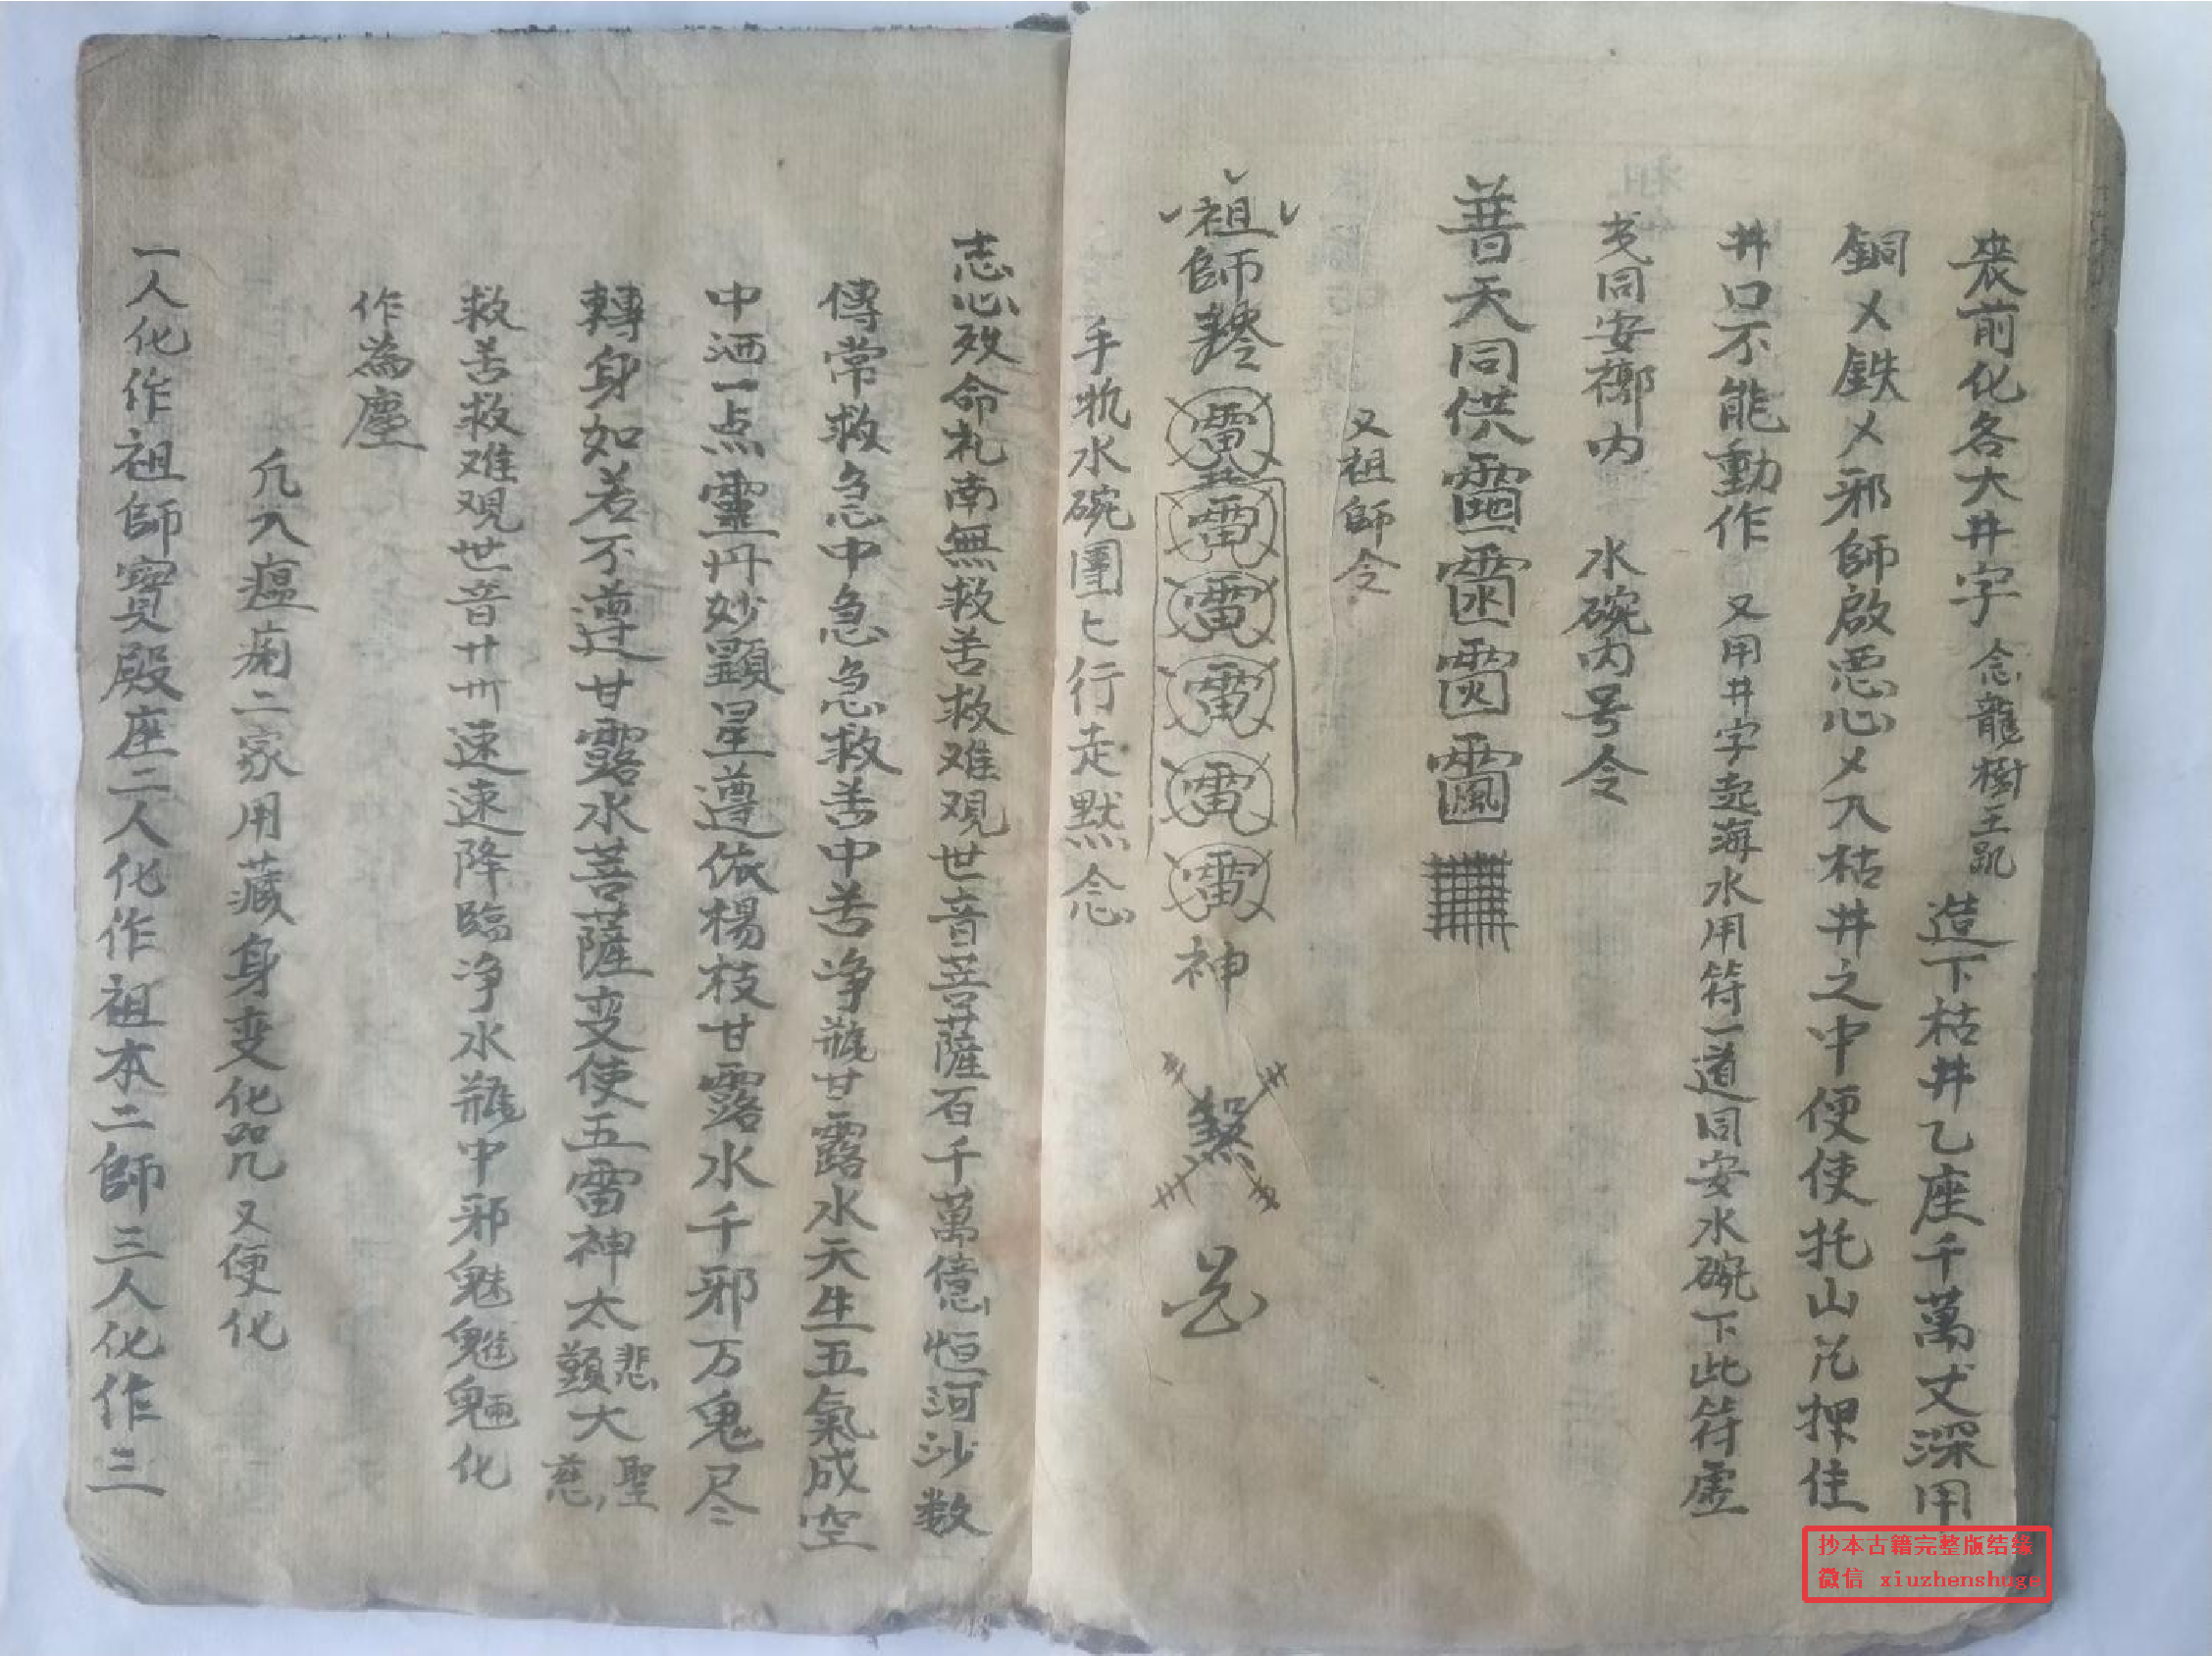 丧前化各大井字 念龍樹王 造下枯井乙座千萬丈深用
銅㐅鉄㐅邪師啟悪心㐅入枯井之中便使托山 押住
井口不能動作 又用井字起海水用符一道同安水碗下此符處
同安 内 水碗内号令
普天同供
又祖師令
祖師 雷 雷 雷 雷 雷 雷 神 煞
手执水碗團匕行走默念
志心 命礼南無救苦救难观世音菩薩百千萬億恒河沙数
傳常救急中急急救苦中苦净瓶甘露水天生五氣成空
中洒一点靈丹妙顕星遵依楊枝甘露水千邪万鬼尽
轉身如若不遵甘露水菩薩变使五雷神太悲 大聖慈
救苦救难观世音廿卅速速降臨净水瓶中邪魅魍魎化
作為塵
凢入瘟痢二家用藏身变化咒又便化
一人化作祖師寶殿座二人化作祖本二師三人化作三
抄本古籍完整版结缘
微信 xiuzhenshuge